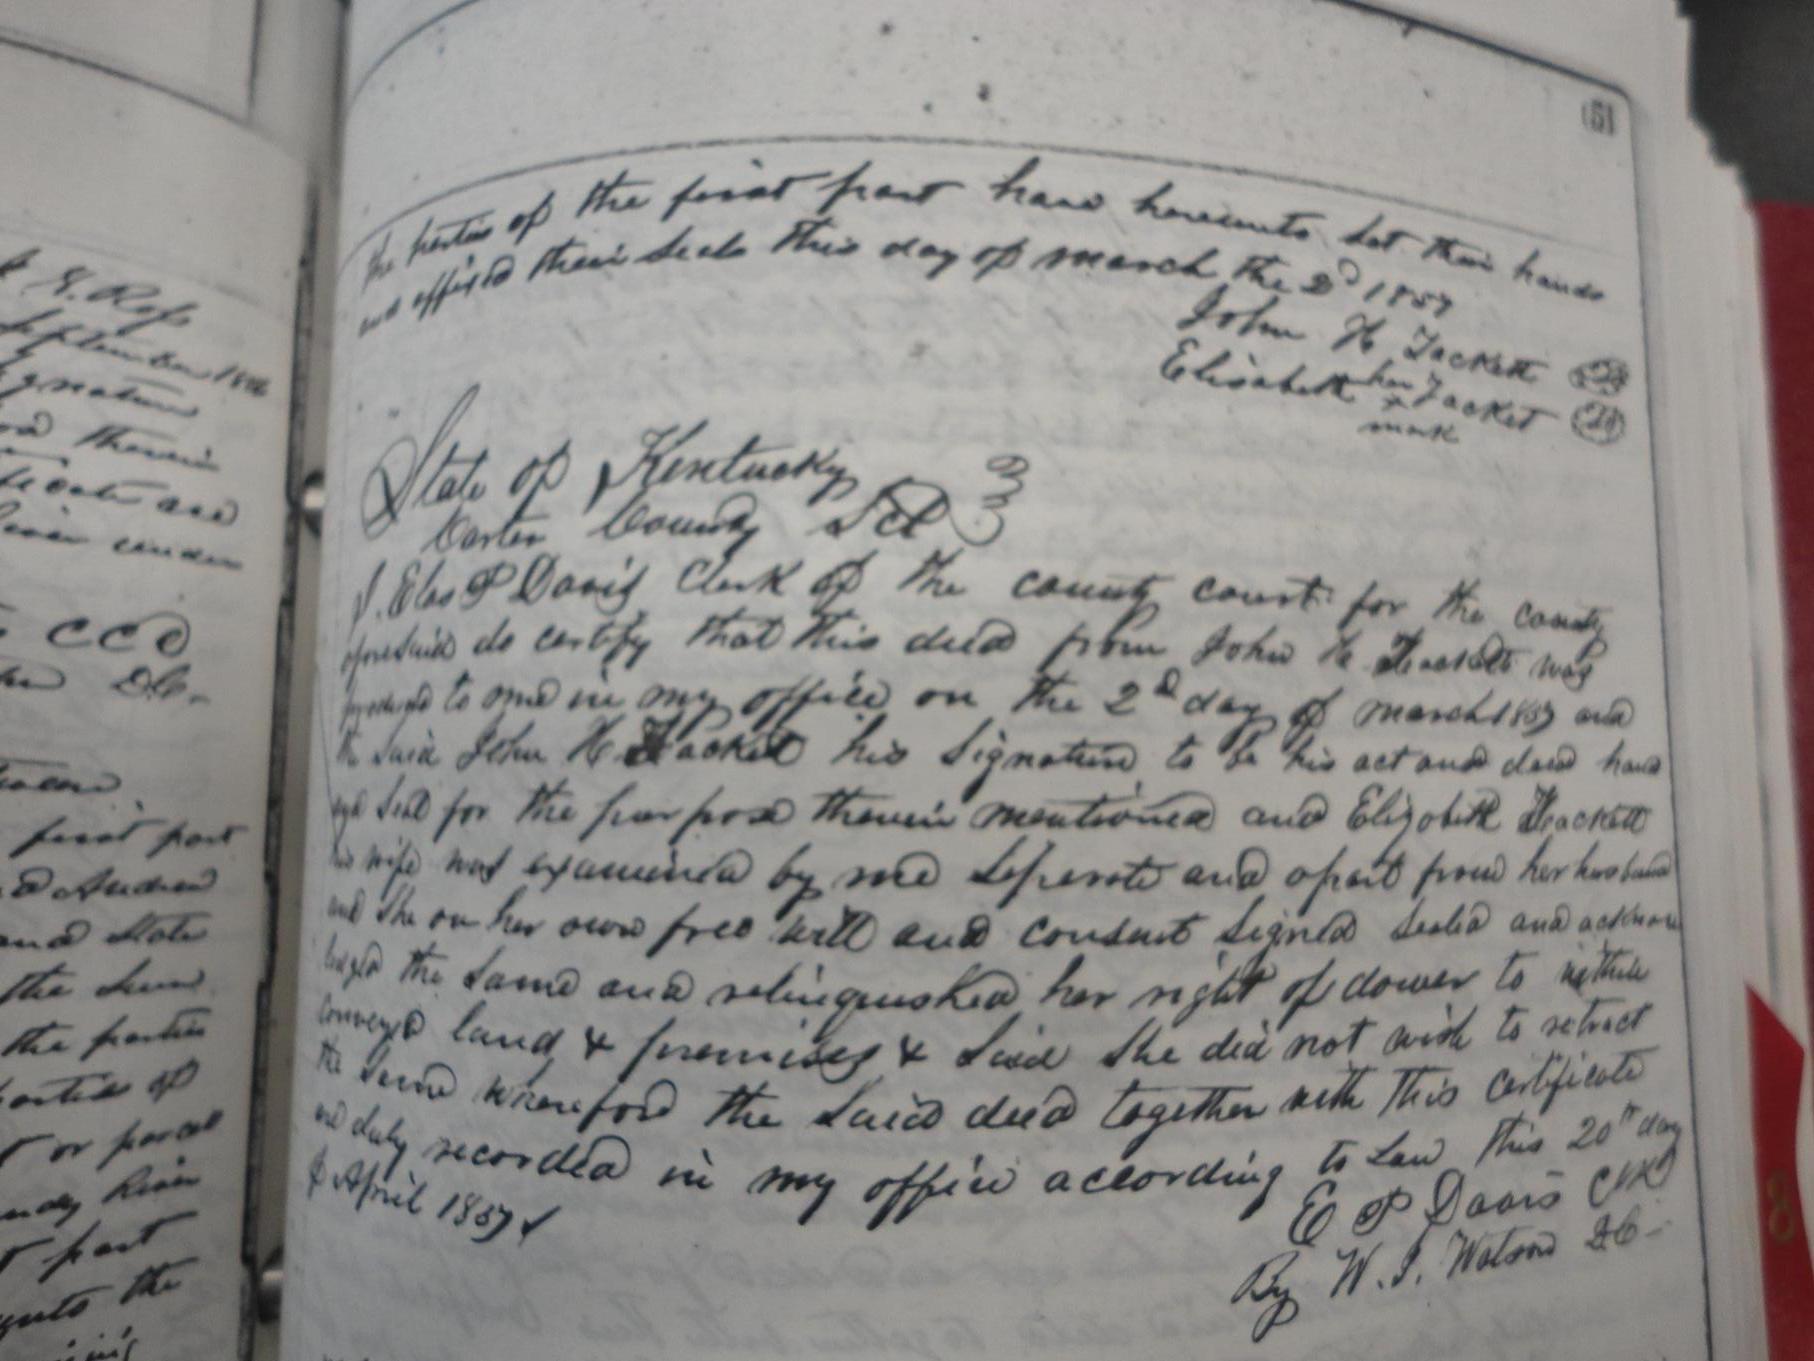 & G. Ross
September 1856
signature
therein
are
under
CCC
DC.
first part
Andrew
and State
the Sum
the parties
parties of
or parcel
River
part
the
(51
the parties of the first part have hereunto set their hands
and affixed their seals this day of march the 2d 1857
John H Tackett
Elisabeth her Tacket
x
mark
State of Kentucky
Carter County Sct
I. Elas P Davis Clerk of the county court for the county
aforesaid do certify that this deed from John H Tackett was
produced to me in my office on the 2d day of march 1857 and
the said John H Tackett his Signature to be his act and deed hand
and Seal for the purpose therein mentioned and Elizabeth Tackett
his wife was examined by me Seperate and apart from her husband
and She on her own free will and consent Signed Sealed and acknow
ledged the Same and relinquished her right of dower to within
conveyed land & premises & Said She did not wish to retract
the Same wherefore the Said deed together with this certificate
are duly recorded in my office according to Law this 20th day
of April 1857
E P Davis Clk
By W. J. Watson DC-
8